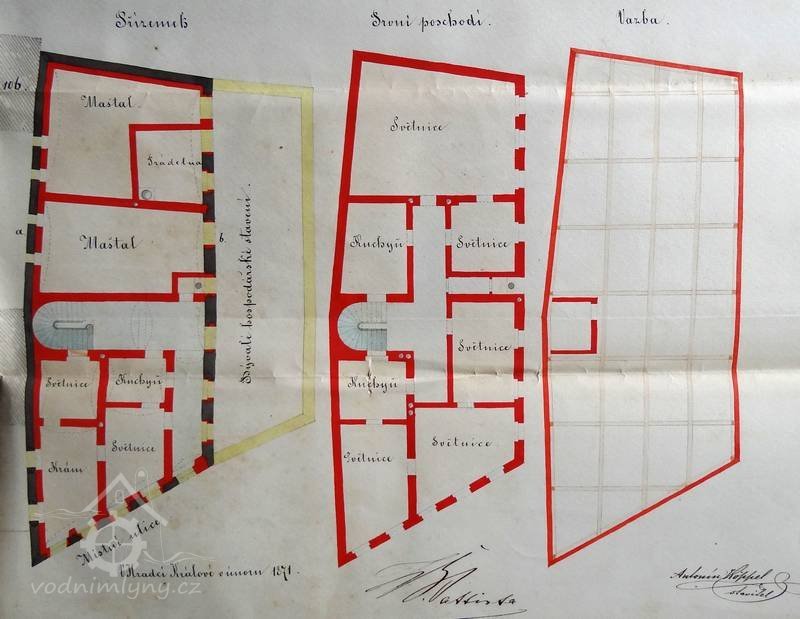 Přízemek
První poschodí.
Vazba.
106.
Maštal
Prádelna
Maštal
a
b.
Bývalé hospodářské stavení.
Světnice
Kuchyň
Světnice
Krám
Místní ulice
V Hradci Králové v únoru 1871.
Světnice
Kuchyň
Světnice
Světnice
Kuchyň
Světnice
Světnice
Antonín Höppel
stavitel
vodnimlyny.cz